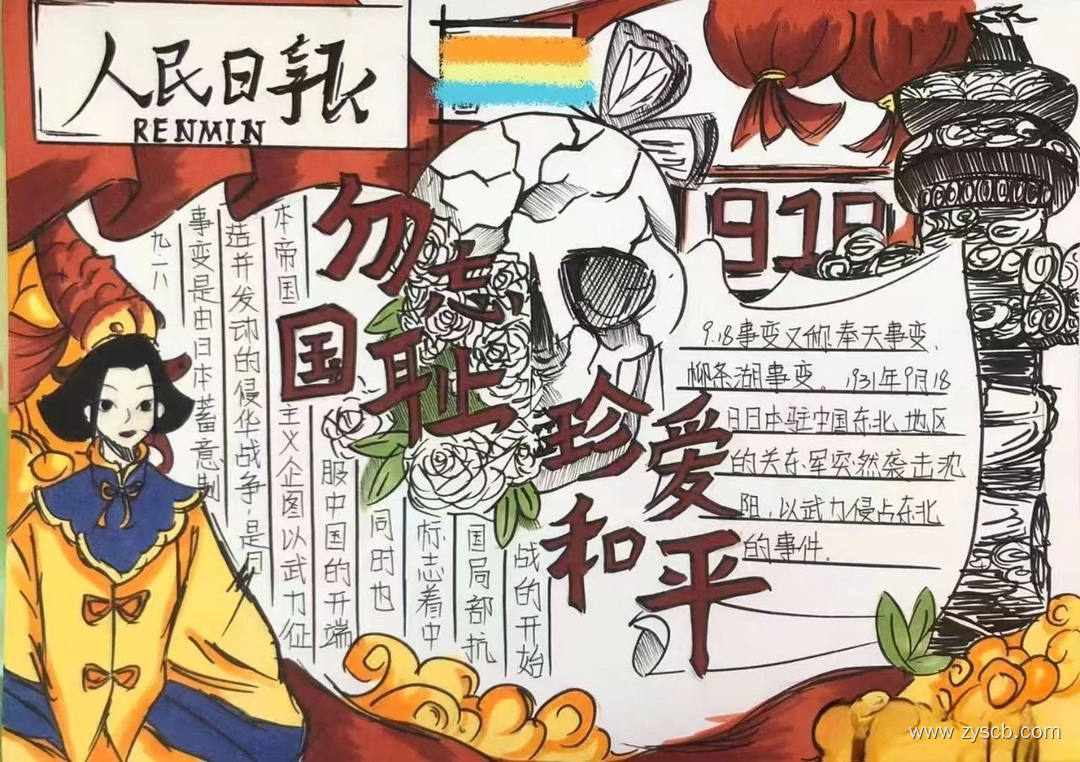 人民日报
RENMIN
勿忘
国耻
珍爱
和平
918
九一八
事变是由日本蓄意制
造并发动的侵华战争,是日
本帝国
主义企图以武力征
服中国的开端
同时也
标志着中
国局部抗
战的开始
9.18事变又称奉天事变、
柳条湖事变。1931年9月18
日日本驻中国东北地区
的关东军突然袭击沈
阳,以武力侵占东北
的事件。
www.zyscb.com